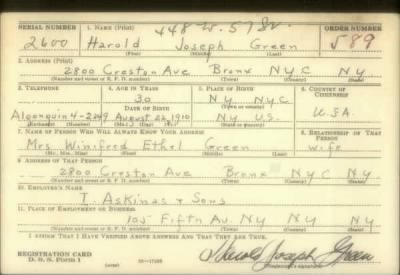 448-W. 57 St.
SERIAL NUMBER 1. NAME (Print) ORDER NUMBER
2600 Harold Joseph Green 589
(First) (Middle) (Last)
2. ADDRESS (Print)
2800 Creston Ave Bronx NYC NY
(Number and street or R. F. D. number) (Town) (County) (State)
3. TELEPHONE 4. AGE IN YEARS 5. PLACE OF BIRTH 6. COUNTRY OF CITIZENSHIP
30 NY NYC
DATE OF BIRTH (Town) (County)
Algonquin 4-2249 August 22, 1910 NY U.S. USA
(Exchange) (Number) (Mo.) (Day) (Yr.) (State) (Country)
7. NAME OF PERSON WHO WILL ALWAYS KNOW YOUR ADDRESS 8. RELATIONSHIP OF THAT PERSON
Mrs Winifred Ethel Green wife
(Mr., Mrs., Miss) (First) (Middle) (Last)
9. ADDRESS OF THAT PERSON
2800 Creston Ave Bronx NYC NY
(Number and street or R. F. D. number) (Town) (County) (State)
10. EMPLOYER'S NAME
I. Askinas & Sons
11. PLACE OF EMPLOYMENT OR BUSINESS
Fifth Av. NY NY NY
(Number and street or R. F. D. number) (Town) (County) (State)
I AFFIRM THAT I HAVE VERIFIED ABOVE ANSWERS AND THAT THEY ARE TRUE.
REGISTRATION CARD
D. S. S. Form 1 Harold Joseph Green
(Registrant's signature)